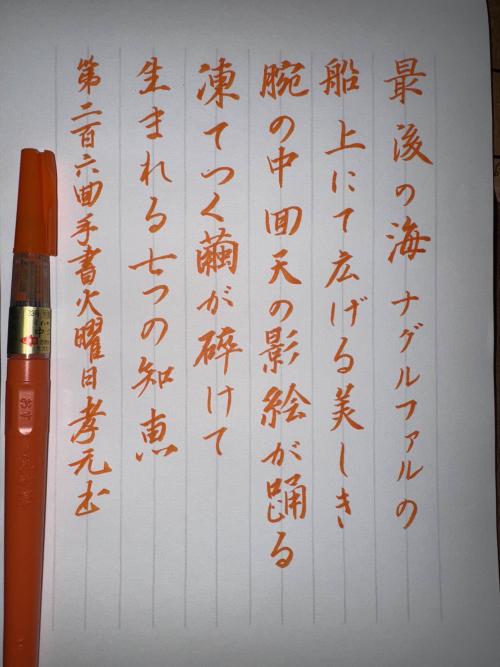 最後の海 ナグルファルの
船上にて広げる美しき
腕の中 回天の影絵が踊る
凍てつく繭が砕けて
生まれる七つの知恵
第二百六回手書火曜日孝元书